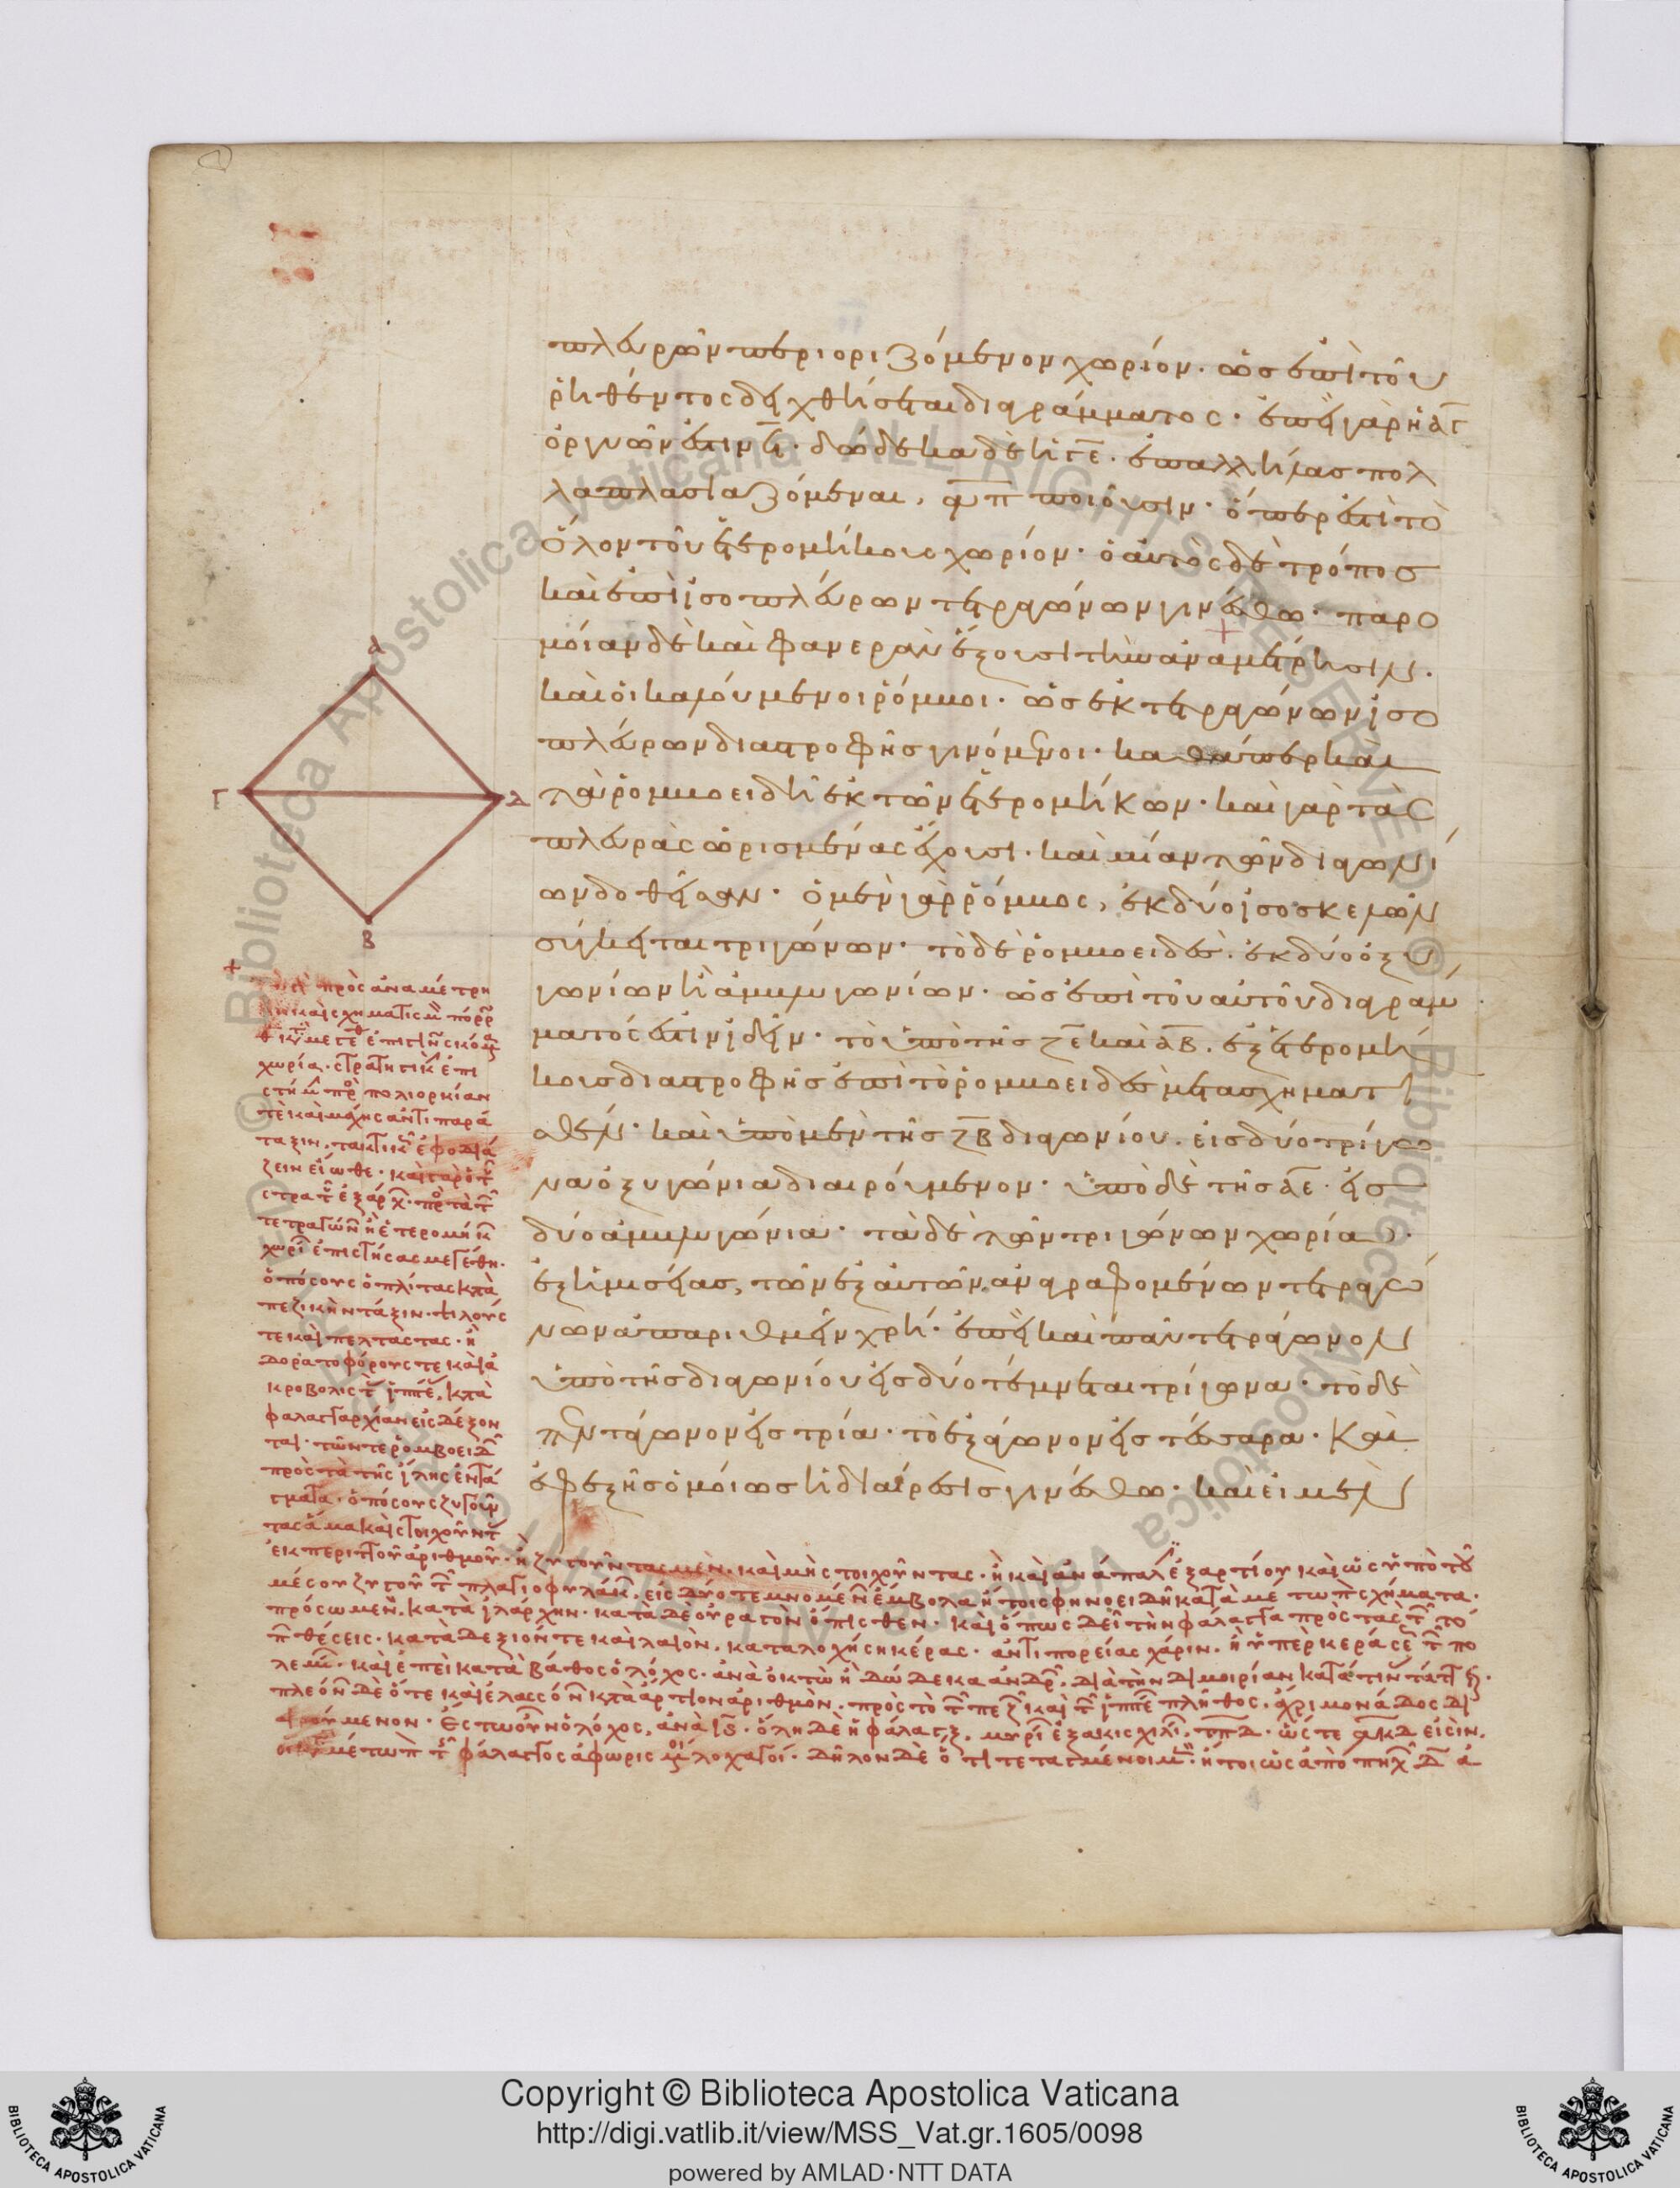 πλευρῶν περιοριζόμενον χωρίον· ὡς ἐπὶ τοῦ
ῥηθέντος δειχθήσεται διαγράμματος· ἐπεὶ γὰρ ἡ α̅γ̅
ὀργυῶν ἐστιν
δώδεκα δὲ ἡ γ̅ε̅· ἐπαλλήλας πολ
λαπλασιαζόμεναι, υ̅π̅ ποιοῦσιν· ὅπερ ἐστὶ τὸ
ὅλον τοῦ ἑτερομήκους χωρίον· ὁ αὐτὸς δὲ τρόπος
καὶ ἐπὶ ἰσοπλεύρων τετραγώνων γινέσθω· παρο
μοίαν δὲ καὶ φανερὰν ἕξουσι τὴν ἀναμέτρησιν·
καὶ οἱ καλούμενοι ῥόμβοι· ὡς ἐκ τετραγώνων ἰσο
πλεύρων διαστροφῆς γινόμενοι· καθάπερ καὶ
τὰ ῥομβοειδῆ ἐκ τῶν ἑτερομήκων· καὶ γὰρ τὰς
πλευρὰς ὡρισμένας ἔχουσι· καὶ μίαν τῶν διαγωνί
ων δοθεῖσαν· ὁ μὲν γὰρ ῥόμβος, ἐκ δύο ἰσοσκελῶν
σύγκειται τριγώνων· τὸ δὲ ῥομβοειδὲς· ἐκ δύο ὀξυ
γωνίων ἢ ἀμβλυγωνίων· ὡς ἐπὶ τοῦ αὐτοῦ διαγράμ
ματός ἐστιν ἰδεῖν· τὸ ὑπὸ τῆς ζ̅ε̅ καὶ α̅β̅· ἐξ ἑτερομή
κους διαστροφῆς ἐπὶ τὸ ῥομβοειδὲς μετασχηματι
σθὲν· καὶ ὑπὸ μὲν τῆς ζ̅β̅ διαγωνίου· εἰς δύο τρίγω
να ὀξυγώνια διαιρούμενον· ὑπὸ δὲ τῆς α̅ε̅· εἰς
δύο ἀμβλυγώνια· τὰ δὲ τῶν τριγώνων χωρία·
ἐξ ἡμισείας, τῶν ἐξ αὐτῶν ἀναγραφομένων τετραγώ
νων ἀπαριθμεῖν χρή· ἐπεὶ καὶ πᾶν τετράγωνον
ὑπὸ τῆς διαγωνίου εἰς δύο τέμνεται τρίγωνα· τὸ δὲ
πεντάγωνον εἰς τρία· τὸ ἑξάγωνον εἰς τέσσαρα· καὶ
ἐφεξῆς ὁμοίως ἡ διαίρεσις γινέσθω· καὶ εἰ μὲν
Α
Γ
Δ
Β
πρὸς ἀναμέτρη
χωρία· στρατηγικ ἐπι
στήμ πρ πολιορκίαν
τὲ καὶ μάχης ἀντιπαρά
ταξιν· τακτικ ἐφοδιά
ζειν εἴωθε· καὶ γὰρ ὁ τ
τετραγών ἢ ἑτερομήκ
χωρί ἐπιστήσας μεγέθη·
ὁπόσους ὁπλίτας κτὰ
πεζικὴν τάξιν· ψιλούς
τε καὶ πελτάστας· ἢ
δορατοφόρους τε καὶ ἀ
κροβολιστ ἱππέ, κτὰ
φαλαγγαρχίαν εἰσδέξον
ται· τῶν τε ῥομβοειδ
πρὸς τὰ τῆς ἴλης ἐντά
γματα· ὁπόσους ζυγοῦν
τας ἅμα καὶ στοιχοῦντ
ἐκ περιττοῦ ἀριθμοῦ· ἢ ζυγοῦντας μὲν· καὶ μὴ στοιχοῦντας· ἢ καὶ ἀνάπαλ ἐξ ἀρτίου καὶ ὡς ὑπὸ τοῦ
μέσου ζυγοῦ τ πλαγιοφυλάκ· εἰς δύο τεμνομέν ἔμβολα ἤτοι σφηνοειδῆ κατὰ μέτωπ σχήματα·
πρόσω μὲν· κατὰ ἰλάρχην· κατὰ δὲ οὐραγὸν ὄπισθεν· καὶ ὅπως δεῖ τὴν φάλαγγα πρὸς τὰς τ τό
π θέσεις· κατὰ δεξιόν τε καὶ λαιὸν· καταλοχήσῃ κέρας· ἀντιπορείας χάριν· ἢ ὑπερκεράσε τ πο
λεμ· καὶ ἐπεὶ κατὰ βάθος ὁ λόχος· ἀνὰ ὀκτὼ ἢ δώδεκα ἄνδρ· διὰ τὴν διμοιρίαν
πλεόν δὲ ὅτε καὶ ἐλασσόν κτὰ ἄρτιον ἀριθμὸν· πρὸς τὸ τ πεζ καὶ τ ἱππέ πλῆθος· ἄχρι μονάδος δι
αιρούμενον· ἔστω οὖν ὁ λόχος, ἀνὰ ι̅ϛ̅· ὅλη δὲ ἡ φάλαγξ, μυρί ἑξακισχιλί, τ̅π̅δ̅· ὥστε α̅κ̅δ̅ εἰσὶν·
μέτωπ τ φάλαγγος ἀφωρισμ λοχαγοί· δῆλον δὲ ὅτι τεταγμένοι μ· ἤτοι ὡς ἀπὸ πηχ δ̅ ἀ
Copyright © Biblioteca Apostolica Vaticana
http://digi.vatlib.it/view/MSS_Vat.gr.1605/0098
powered by AMLAD·NTT DATA
BIBLIOTECA APOSTOLICA VATICANA
BIBLIOTECA APOSTOLICA VATICANA